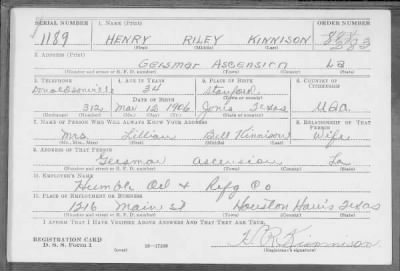 SERIAL NUMBER 1. NAME (Print) ORDER NUMBER
1189 HENRY RILEY KINNISON
(First) (Middle) (Last)
2. ADDRESS (Print)
GEISMAR ASCENSION La
(Number and street or R. F. D. number) (Town) (County) (State)
3. TELEPHONE 4. AGE IN YEARS 5. PLACE OF BIRTH 6. COUNTRY OF CITIZENSHIP
Donaldsonville 34 Stanford
DATE OF BIRTH
312 Mar 12 1906 Jones Texas USA
(Exchange) (Number) (Mo.) (Day) (Yr.) (Town) (County) (State or country)
7. NAME OF PERSON WHO WILL ALWAYS KNOW YOUR ADDRESS 8. RELATIONSHIP OF THAT PERSON
Mrs. Lillian Bell Kinnison Wife
(Mr., Mrs., Miss) (First) (Middle) (Last)
9. ADDRESS OF THAT PERSON
Geismar ascension La
(Number and street or R. F. D. number) (Town) (County) (State)
10. EMPLOYER'S NAME
Humble Oil & Rifg Co
11. PLACE OF EMPLOYMENT OR BUSINESS
1216 Main St Houston Harris Texas
(Number and street or R. F. D. number) (Town) (County) (State)
I AFFIRM THAT I HAVE VERIFIED ABOVE ANSWERS AND THAT THEY ARE TRUE.
REGISTRATION CARD
D. S. S. Form 1 (over) 16-17105 H R Kinnison
(Registrant's signature)